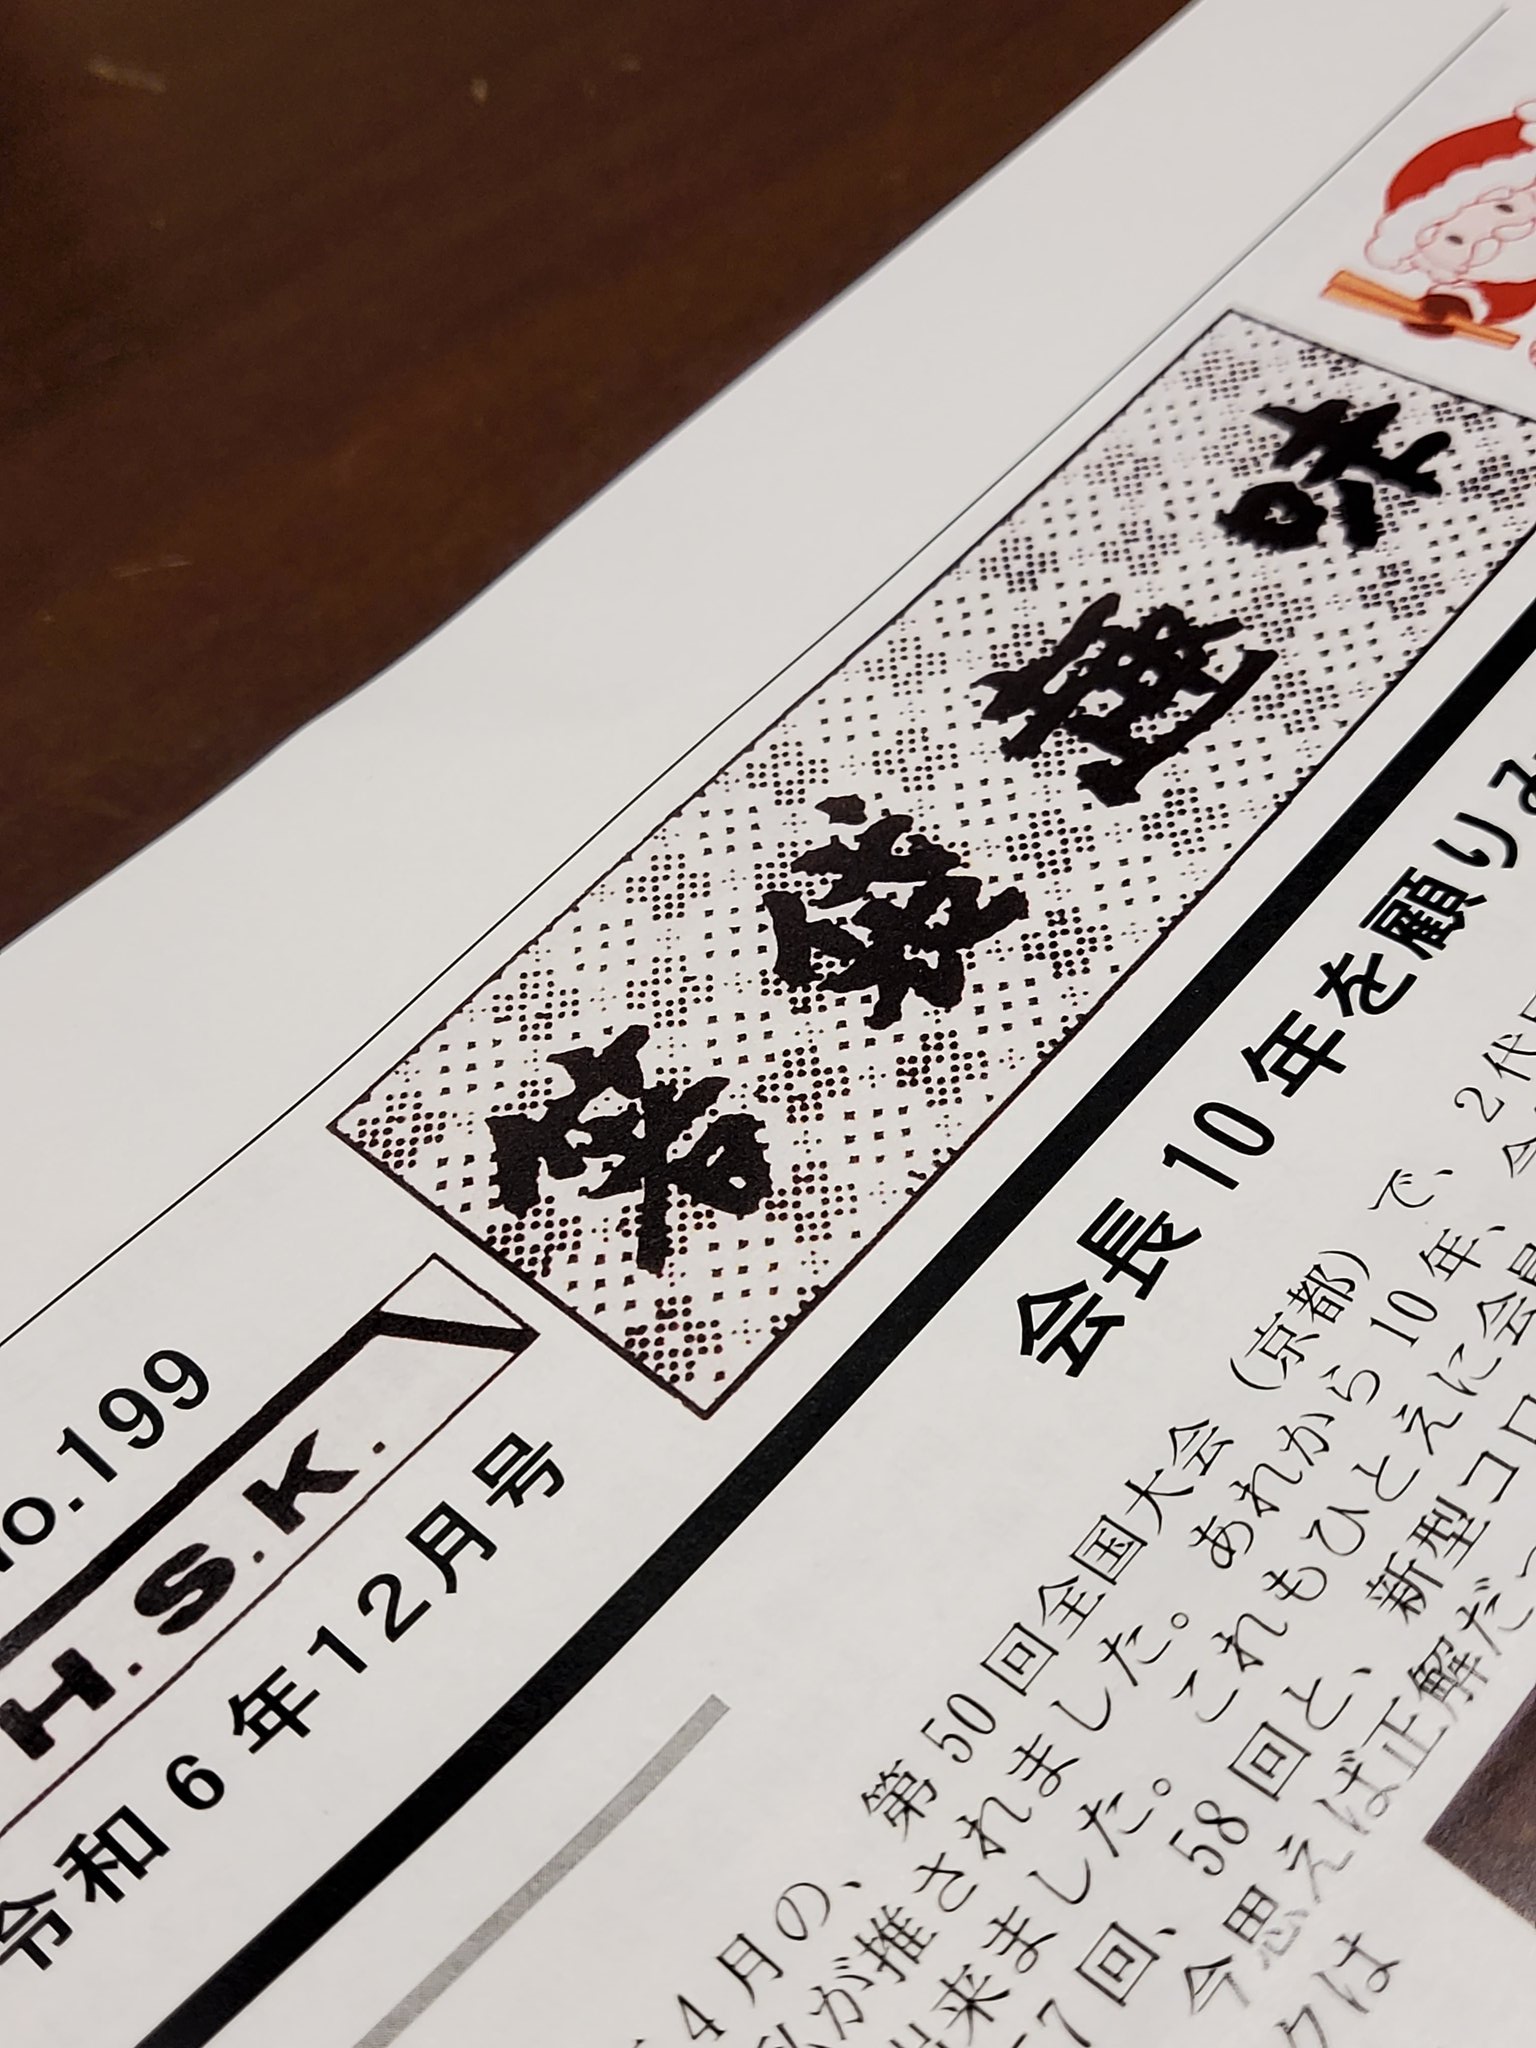 no.199
H.S.K.
令和6年12月号
箸袋趣味
会長10年を顧りみ
4月の、第50回全国大会(京都)で、2代
私が推されました。あれから10年、
出来ました。これもひとえに会員
57回、58回と、新型コロ
今思えば正解だっ
クは